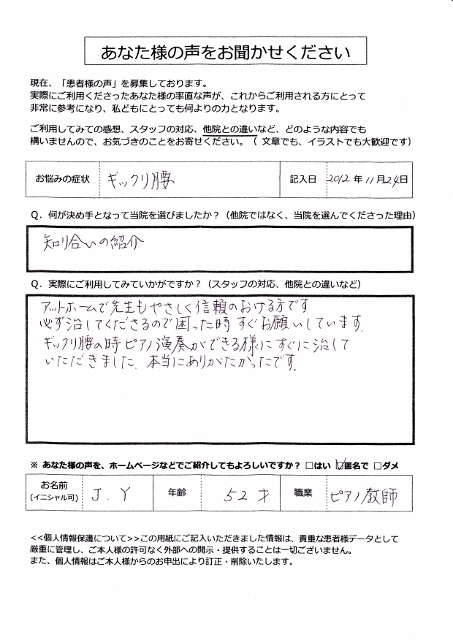 あなた様の声をお聞かせください
現在、「患者様の声」を募集しております。
実際にご利用くださったあなた様の率直な声が、これからご利用される方にとって
非常に参考になり、私どもにとっても何よりの力となります。
ご利用してみての感想、スタッフの対応、他院との違いなど、どのような内容でも
構いませんので、お気づきのことをお寄せください。（ 文章でも、イラストでも大歓迎です）
お悩みの症状 ギックリ腰 記入日 2012 年 11 月 24 日
Q．何が決め手となって当院を選びましたか？（他院ではなく、当院を選んでくださった理由）
知り合いの紹介
Q．実際にご利用してみていかがですか？（スタッフの対応、他院との違いなど）
アットホームで先生もやさしく信頼のおける方です
必ず治してくださるので困った時すぐお願いしています．
ギックリ腰の時ピアノ演奏ができる様にすぐに治して
いただきました．本当にありがたかったです．
※ あなた様の声を、ホームページなどでご紹介してもよろしいですか？ □はい ☑匿名で □ダメ
お名前 J．Y 年齢 52 才 職業 ピアノ教師
（イニシャル可）
<<個人情報保護について>>この用紙にご記入いただきました情報は、貴重な患者様データとして
厳重に管理し、ご本人様の許可なく外部への開示・提供することは一切ございません。
また、個人情報はご本人様からのお申出により訂正・削除いたします。